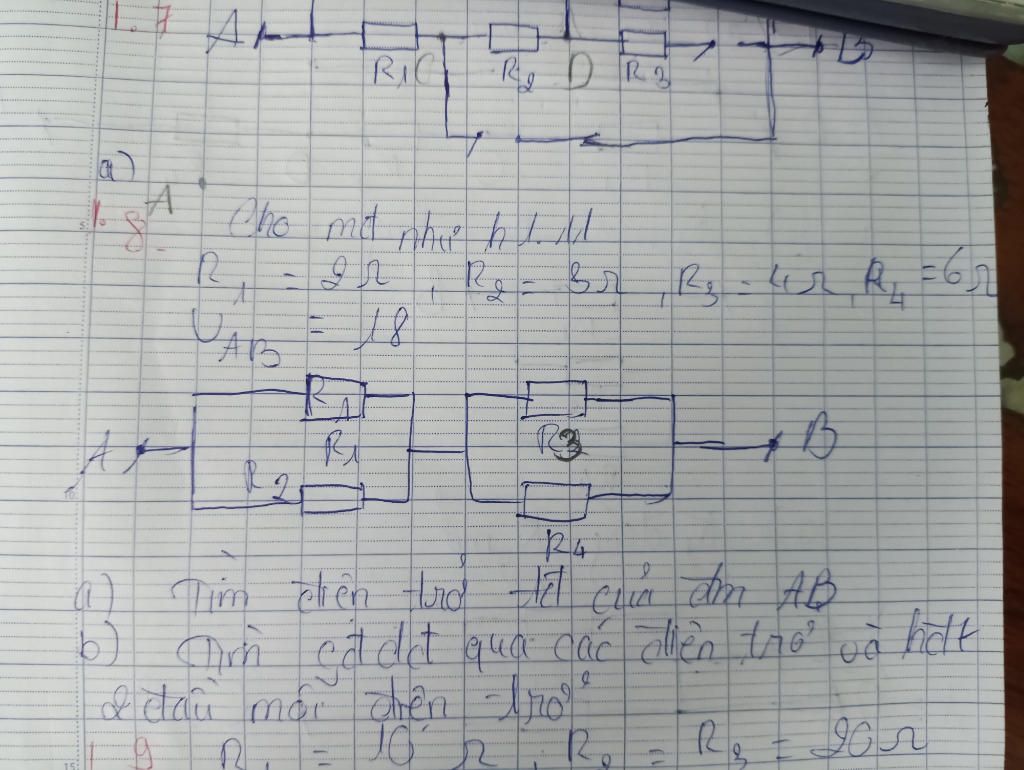 1.7 A B
R1 C R2 D R3
a)
1.8 A Cho mđ như h 1.11
R1 = 2Ω, R2 = 3Ω, R3 = 4Ω, R4 = 6Ω
UAB = 18
R1
A R1 R3 B
R2
R4
a) Tìm điện trở tđ của đm AB
b) Tìm cđdđ qua các điện trở và hđt
2 đầu mỗi điện trở
1.9 R1 = 10 Ω, R2 = R3 = 20Ω